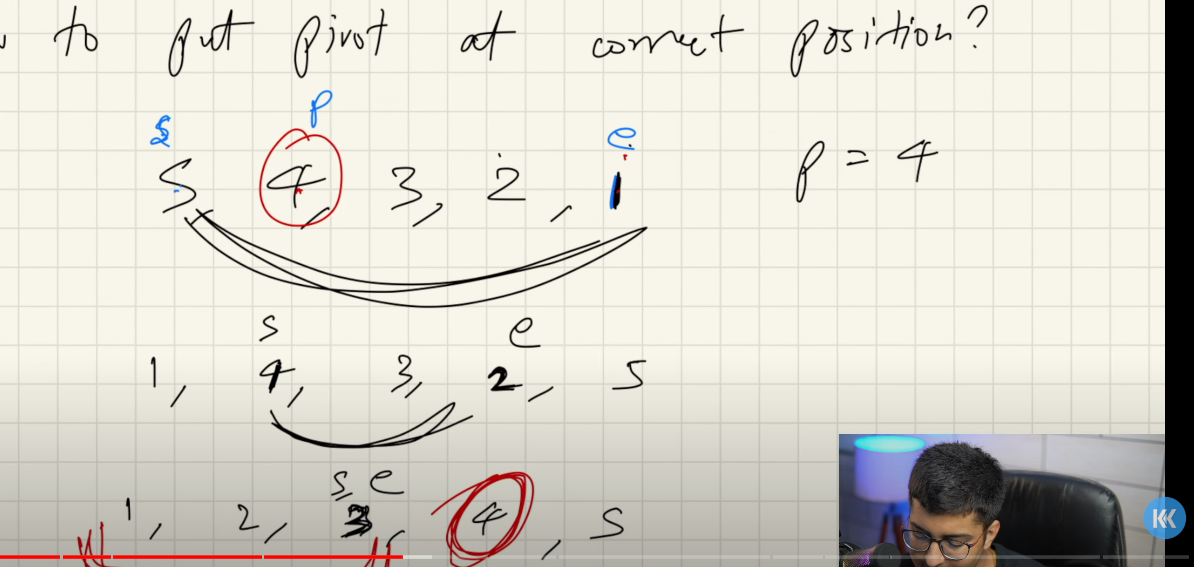 to put pivot at correct position?
p
s e
5 4, 3, 2, 1 p = 4
s e
1, 4, 3, 2, 5
s e
1, 2, 3, 4, 5